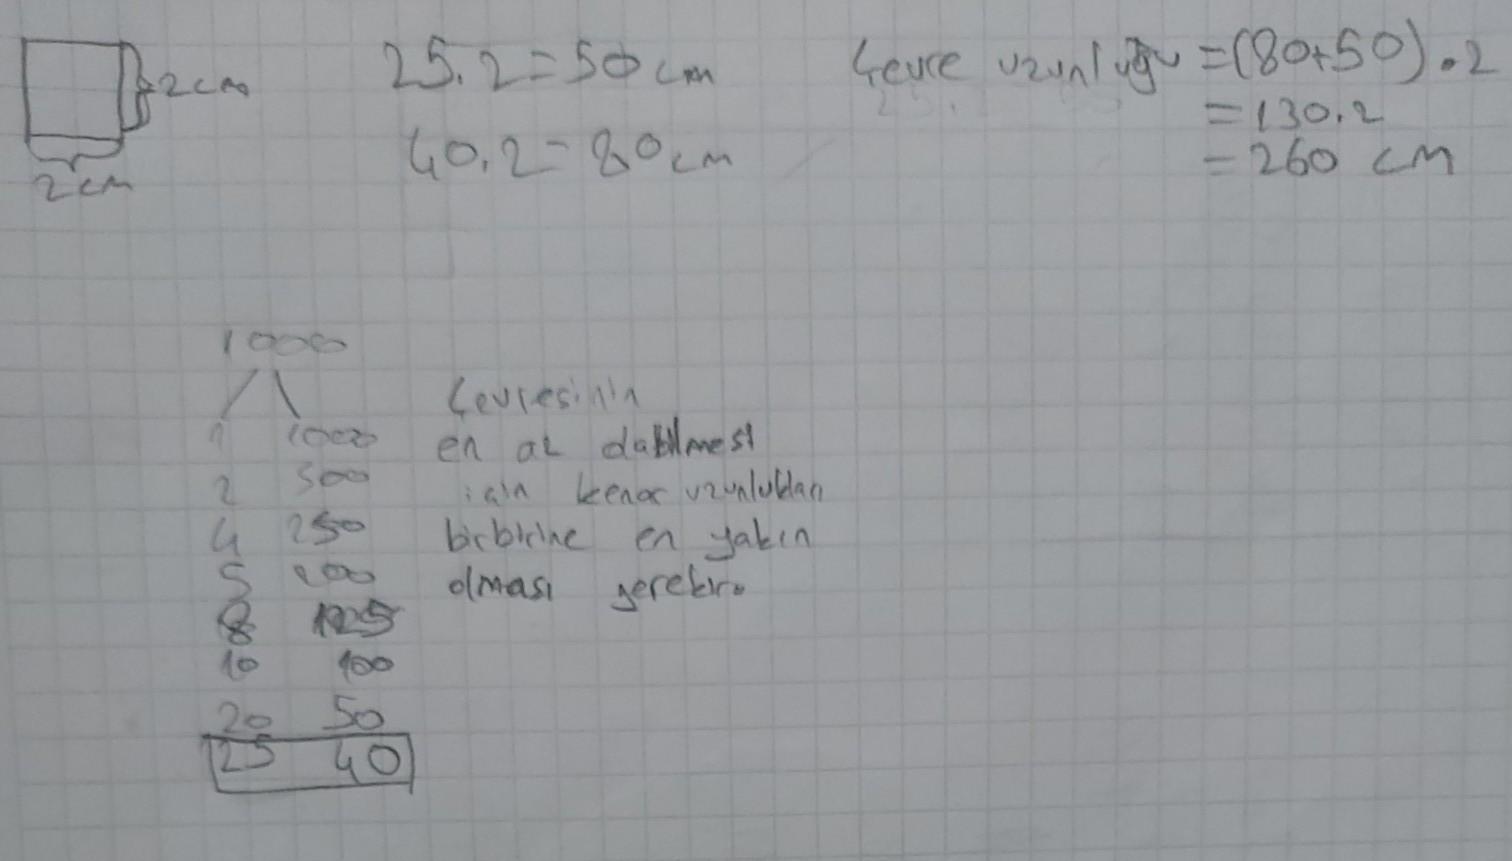 2cm
2cm
25.2=50cm
40.2=80cm
Çevre uzunluğu =(80+50).2
=130.2
=260 cm
1000
1 1000
2 500
4 250
5 200
8 125
10 100
20 50
25 40
Çevresinin
en az olabilmesi
için kenar uzunlukları
birbirine en yakın
olması gerekir.